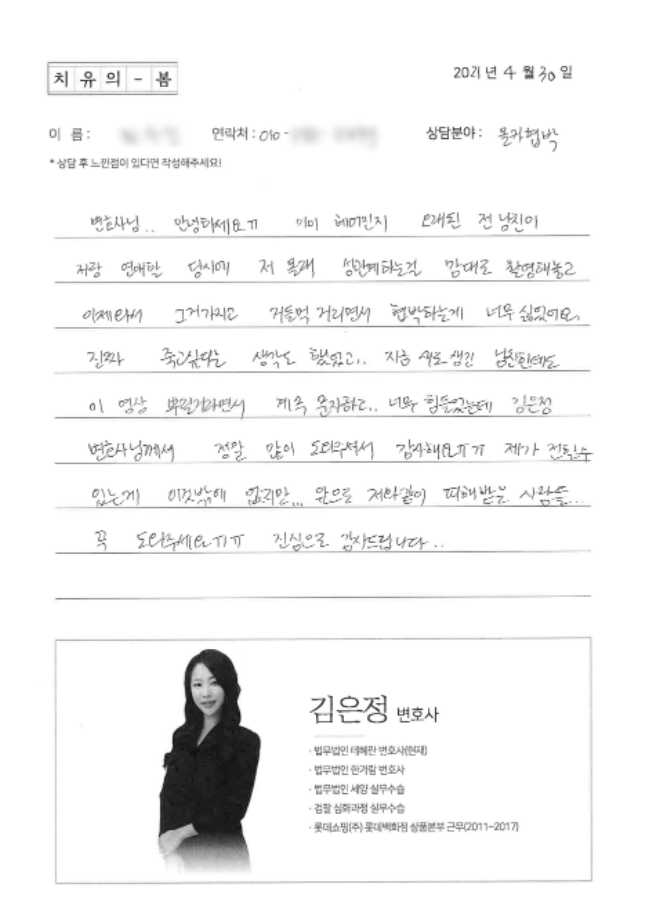 치유의-봄
2021년 4월 30일
이 름 :
연락처 : 010-
상담분야 : 몰카협박
* 상담 후 느낀점이 있다면 작성해주세요!
변호사님.. 안녕하세요ㅠ 이미 헤어진지 오래된 전 남친이
저랑 연애할 당시에 저 몰래 성관계하는걸 맘대로 촬영해놓고
이제와서 그거가지고 거들먹 거리면서 협박하는게 너무 싫었어요.
진짜 죽고싶다는 생각도 했었고.. 지금 새로 생긴 남친한테도
이 영상 뿌릴거라면서 계속 문자하고.. 너무 힘들었는데 김은정
변호사님께서 정말 많이 도와주셔서 감사해요ㅠㅠ 제가 전할수
있는게 이것밖에 없지만... 앞으로 저와같이 피해받은 사람들...
꼭 도와주세요ㅠㅠ 진심으로 감사드립니다..
김은정 변호사
· 법무법인 테헤란 변호사(현재)
· 법무법인 한가람 변호사
· 법무법인 세양 실무수습
· 검찰 심화과정 실무수습
· 롯데쇼핑(주) 롯데백화점 상품본부 근무(2011~2017)